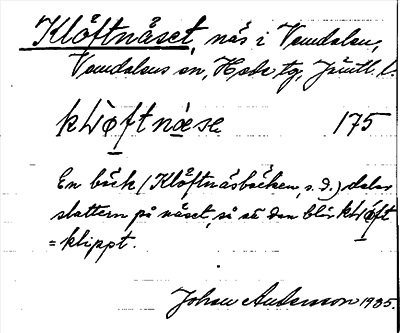 Klöftnäset, näs i Vemdalen,
Vemdalens sn, Hede tg, Jämtl. l.
kLöftnæse 175
En bäck (Klöftnäsbäcken, s. d.) delar
slåttern på näset, så så den blir kLöft
= klippt.
Johan Anderson 1935.